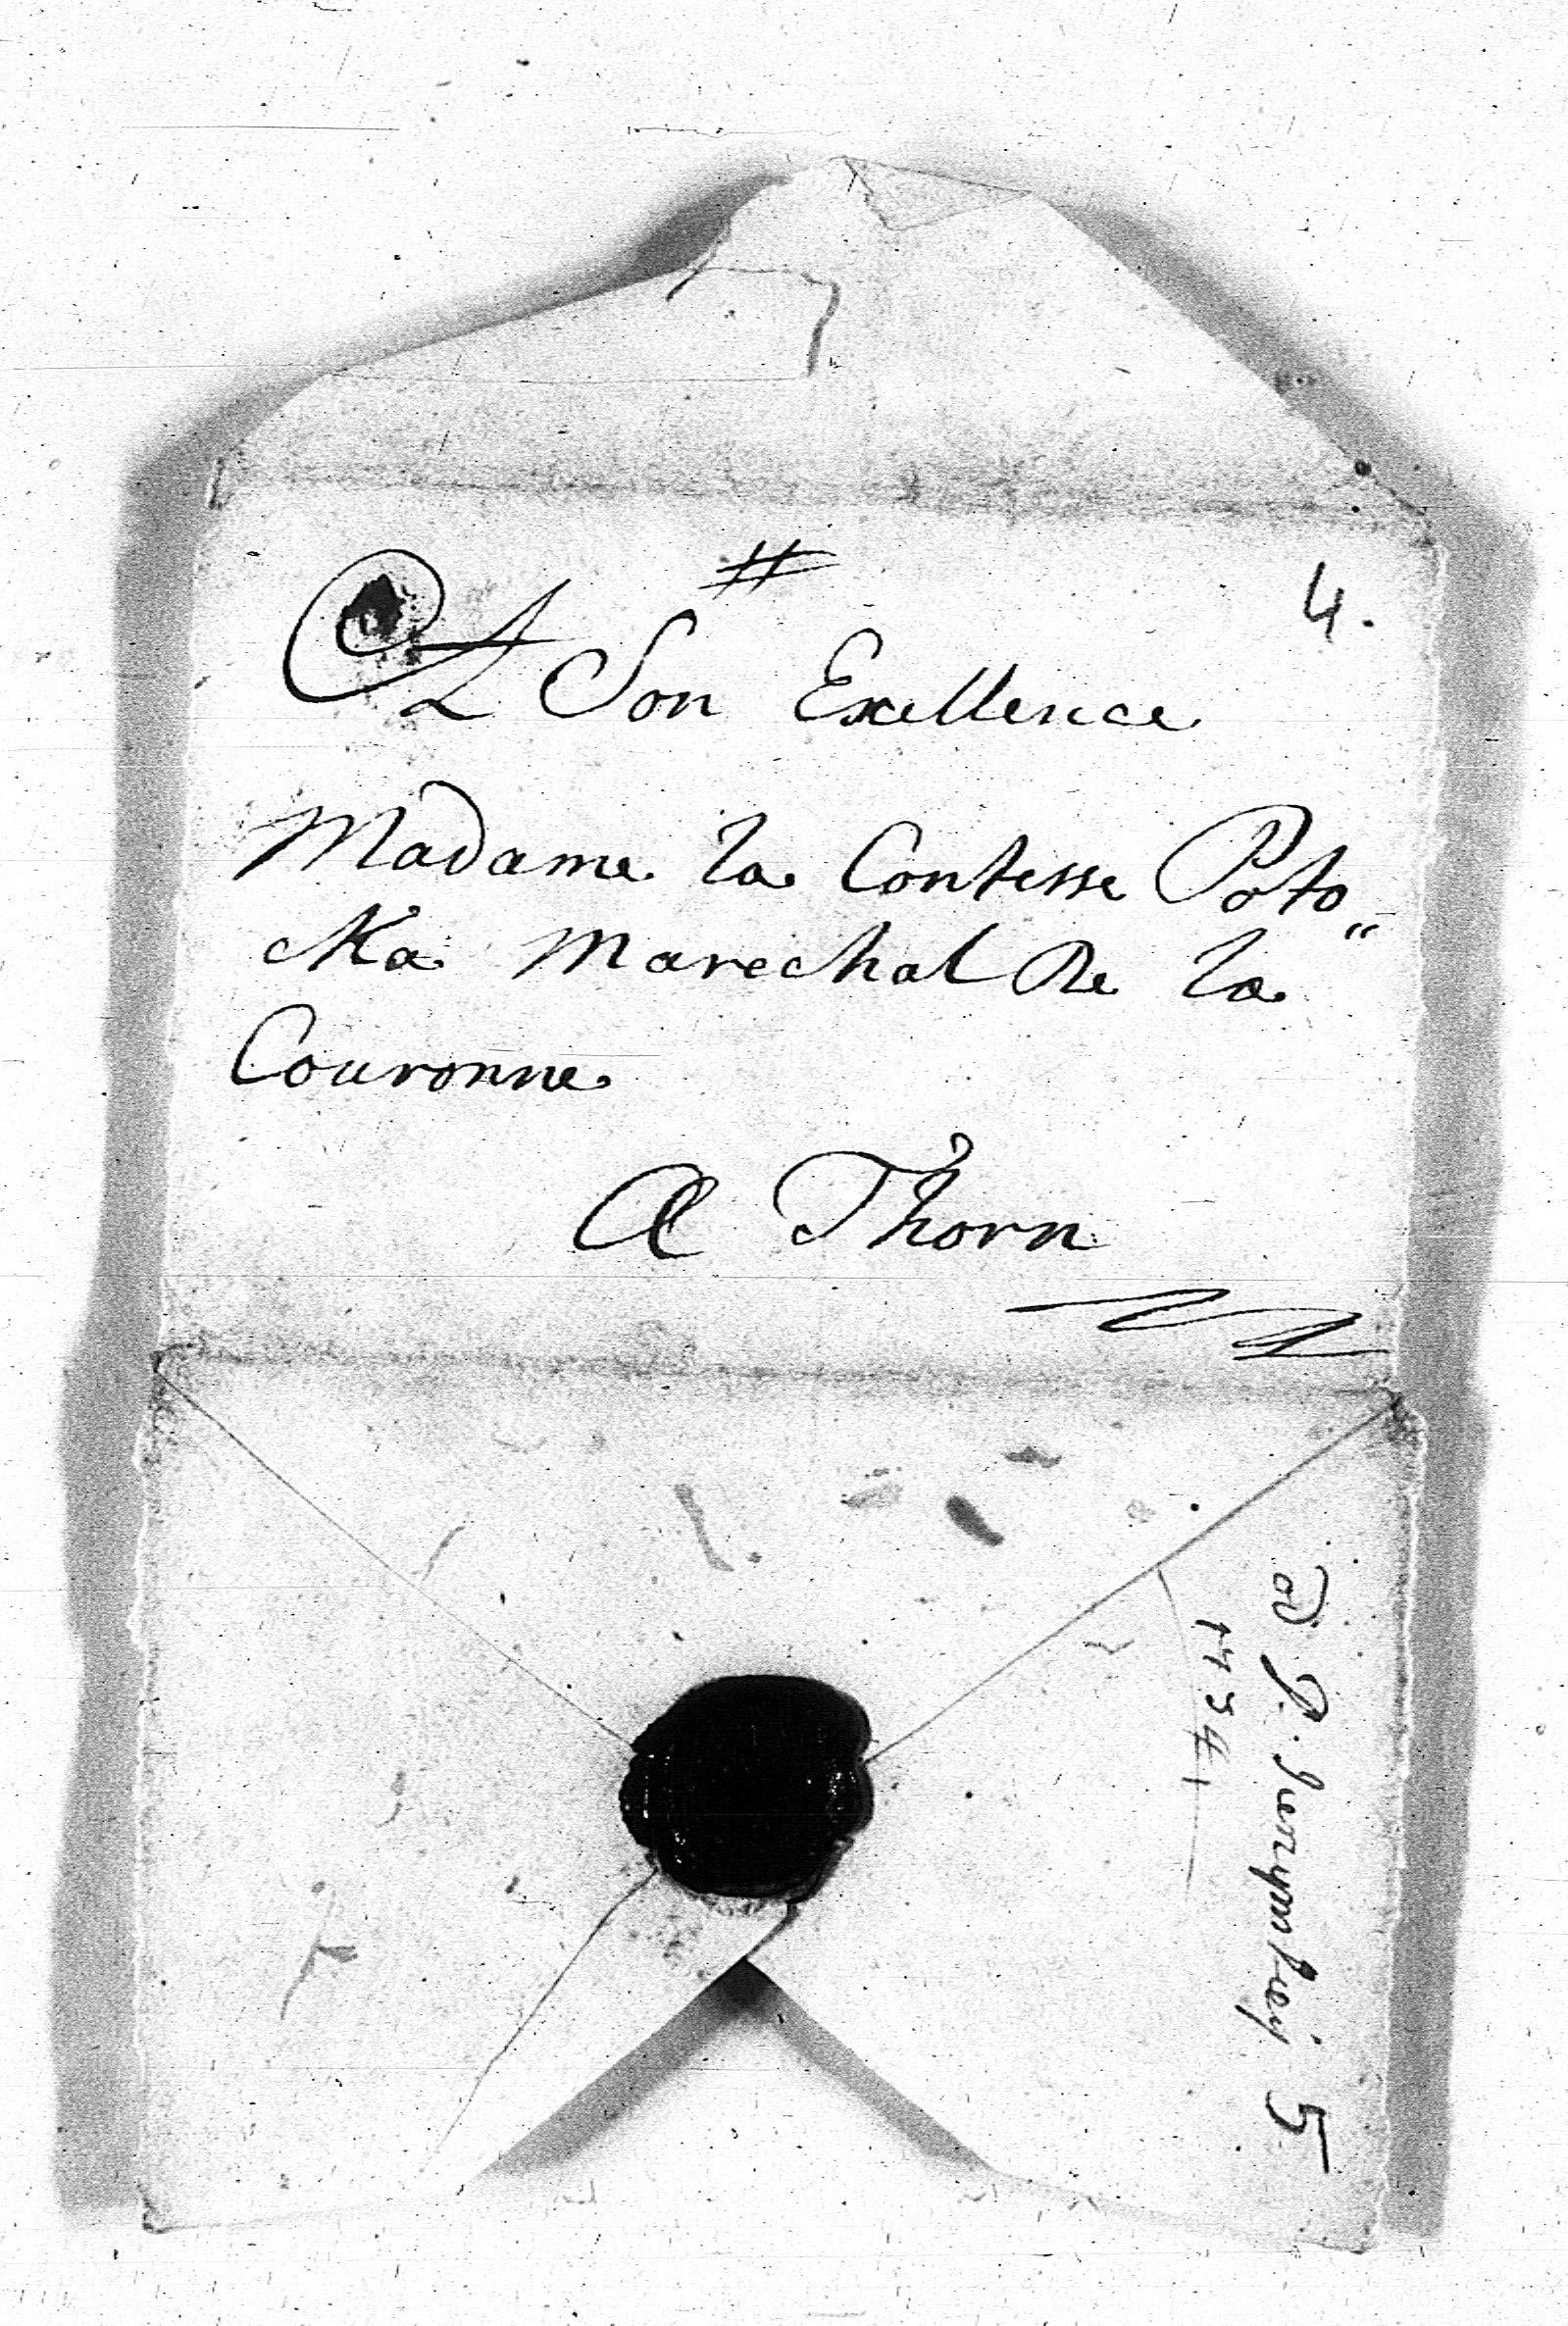 #
4.
A Son Exellence
Madame la Contesse Poto"
cka Marechal De la
Couronne
A Thorn
od P.
1734
5